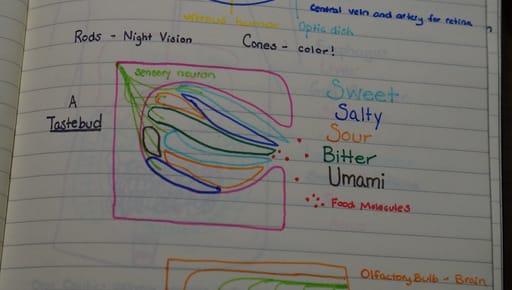 Central vein and artery for retina
vitreous humour
Optic disk
Rods - Night Vision
Cones - color!
sensory neuron
A
Tastebud
Sweet
Salty
Sour
Bitter
Umami
Food Molecules
Olfactory Bulb - Brain